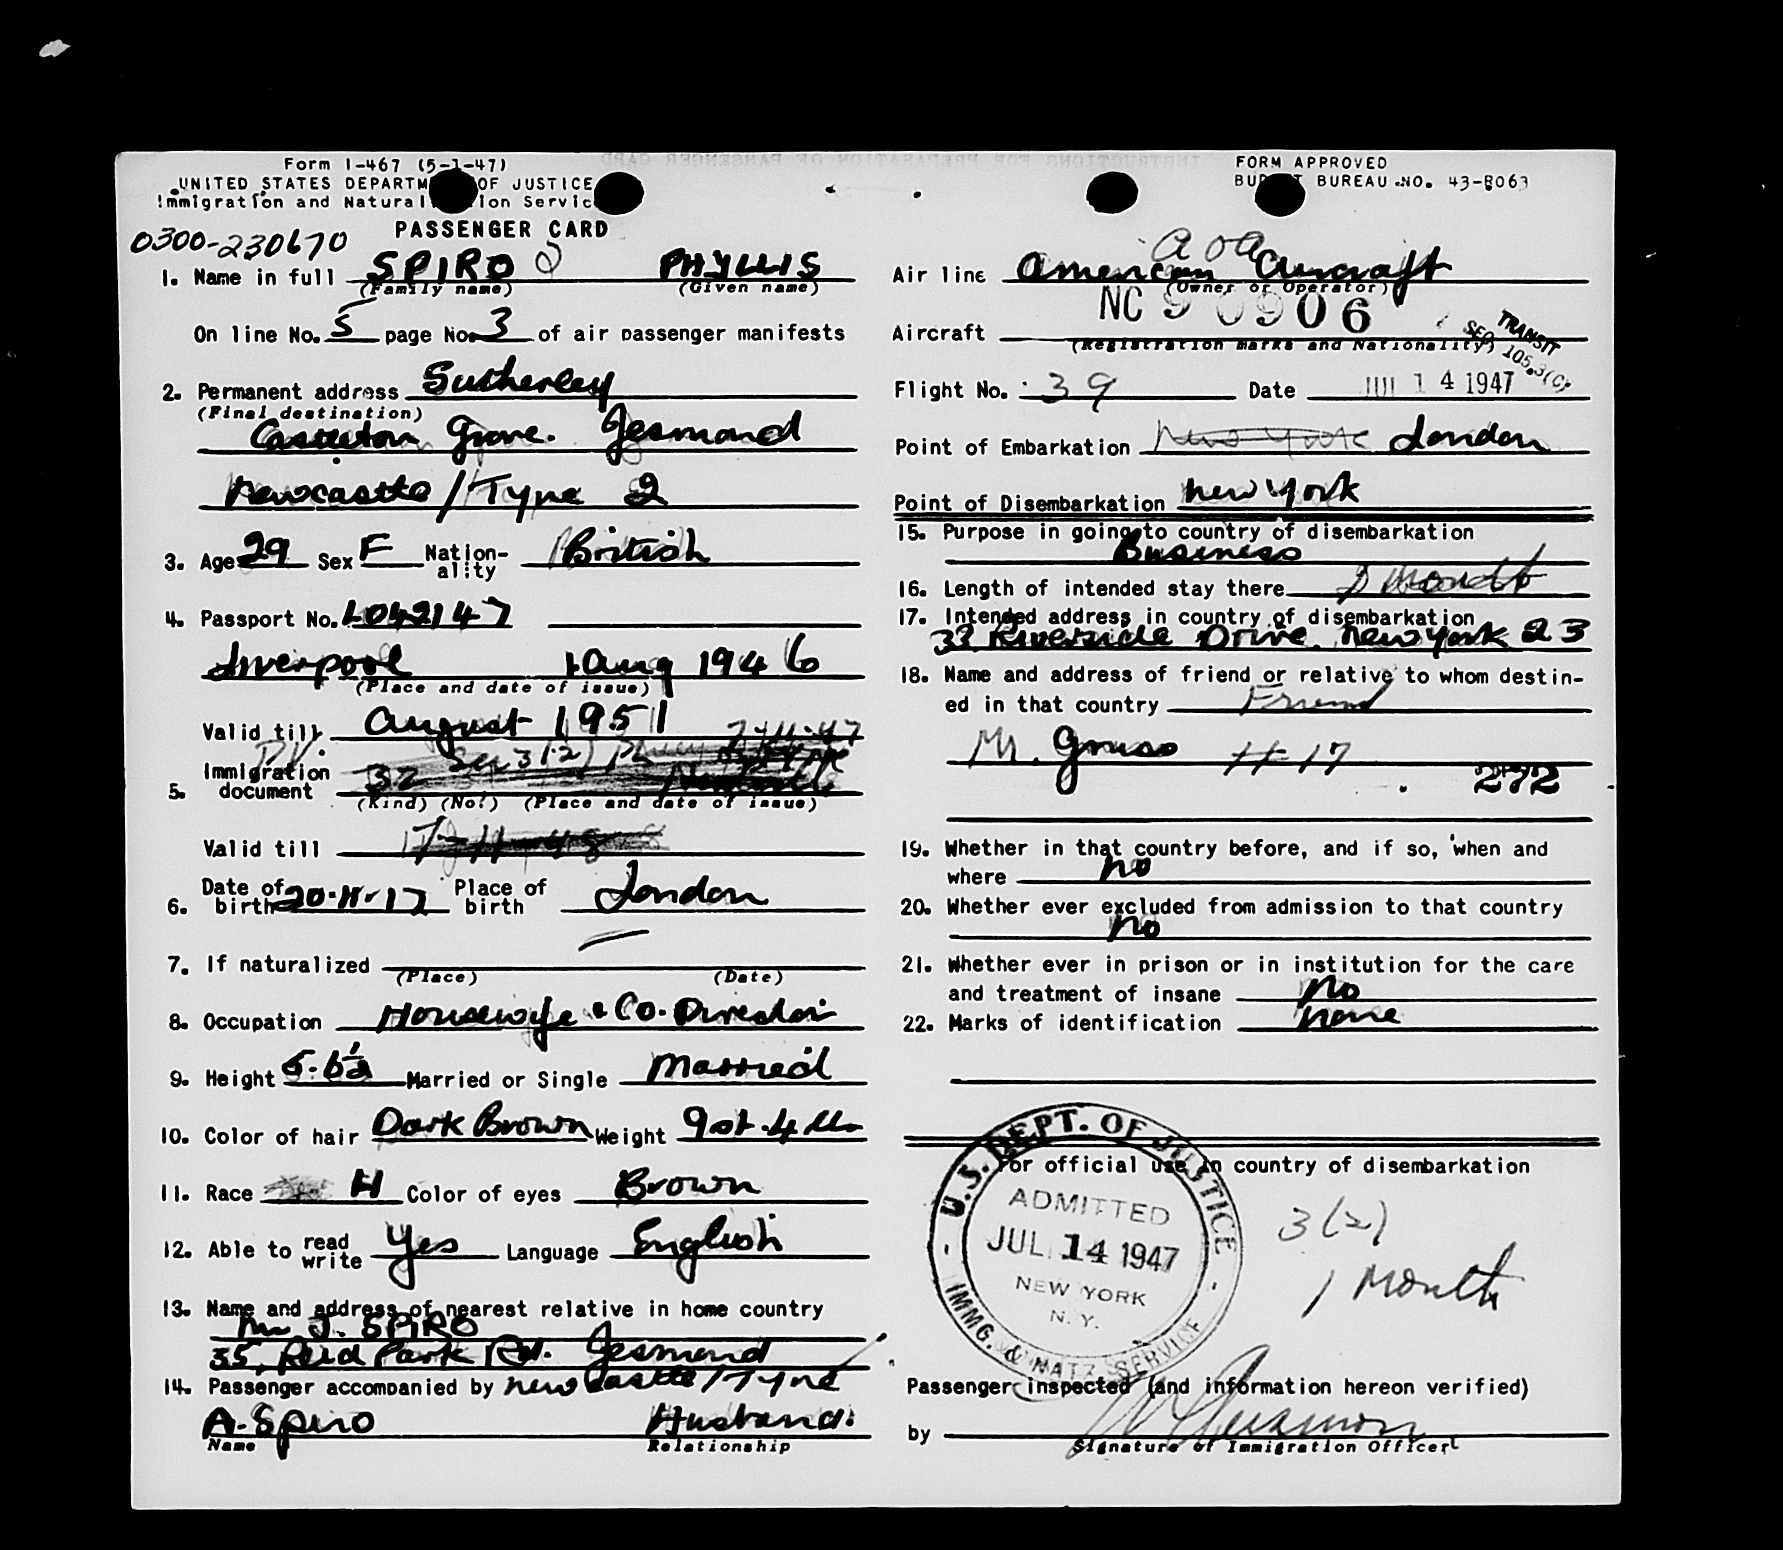 Form I-467 (5-1-47)
UNITED STATES DEPARTM OF JUSTICE
Immigration and Natural ion Servic
PASSENGER CARD
0300-230670
1. Name in full SPIRO PHYLLIS
(Family name) (Given name)
On line No. 5 page No. 3 of air passenger manifests
2. Permanent address Sutherley
(Final destination)
Castleton Grove. Jesmond
Newcastle/Tyne 2
3. Age 29 Sex F Nation-ality British
4. Passport No. L042147
Liverpool 1 Aug 1946
(Place and date of issue)
Valid till August 1951
5. Immigration document
(Kind) (No.) (Place and date of issue)
Valid till
6. Date of birth 20-11-17 Place of birth London
7. If naturalized
(Place) (Date)
8. Occupation Housewife & Co. Director
9. Height 5.6½ Married or Single Married
10. Color of hair Dark Brown Weight 9 st. 4 lbs
11. Race H Color of eyes Brown
12. Able to read write Yes Language English
13. Name and address of nearest relative in home country
J. SPIRO
35, Reid Park Rd. Jesmond
Newcastle/Tyne
14. Passenger accompanied by
A. Spiro Husband.
Name Relationship
FORM APPROVED
BUD T BUREAU NO. 43-R063
A O A
Air line American Aircraft
(Owner or Operator)
Aircraft NC 90906
(Registration marks and Nationality)
TRANSIT
SEC. 105.3(C)
Flight No. 39 Date JUL 14 1947
Point of Embarkation New York London
Point of Disembarkation New York
15. Purpose in going to country of disembarkation
Business
16. Length of intended stay there Month
17. Intended address in country of disembarkation
33 Riverside Drive. New York 23
18. Name and address of friend or relative to whom destin-
ed in that country Friend
Mr. Gruso
272
19. Whether in that country before, and if so, when and
where no
20. Whether ever excluded from admission to that country
no
21. Whether ever in prison or in institution for the care
and treatment of insane No
22. Marks of identification none
For official use in country of disembarkation
U.S. DEPT. OF JUSTICE
ADMITTED
JUL 14 1947
NEW YORK
N. Y.
IMMG. & NATZ. SERVICE
3(2)
1 Month
Passenger inspected (and information hereon verified)
by
Signature of Immigration Officer